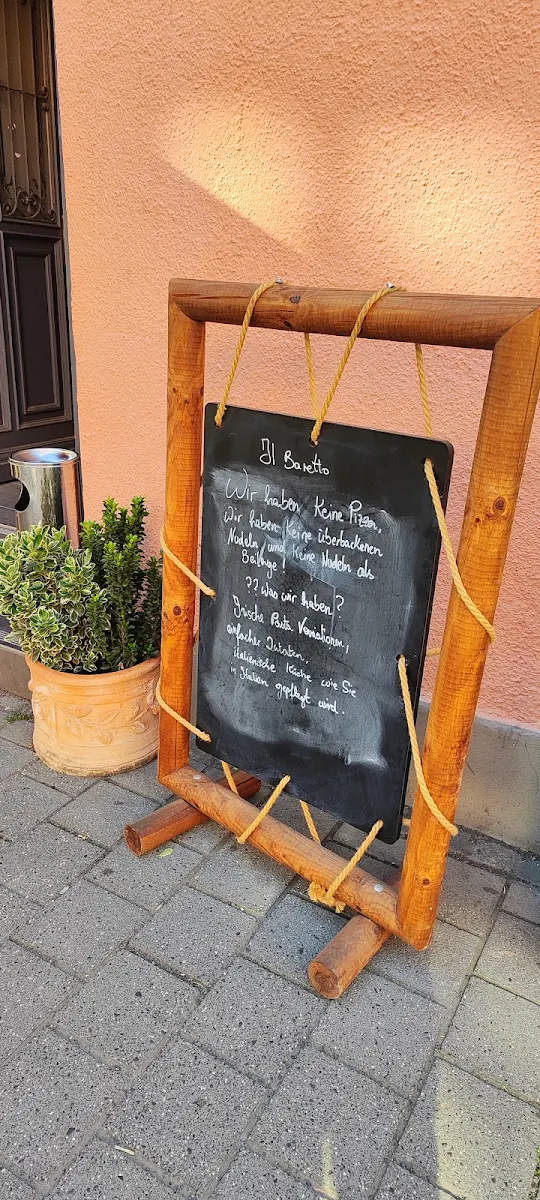 Il Baretto
Wir haben Keine Pizzen,
Wir haben Keine überbackenen
Nudeln und Keine Nudeln als
Beilage!
?? was wir haben?
Frische Pasta Variationen,
einfacher Zutaten,
italienische Küche wie Sie
in Italien gepflegt wird.